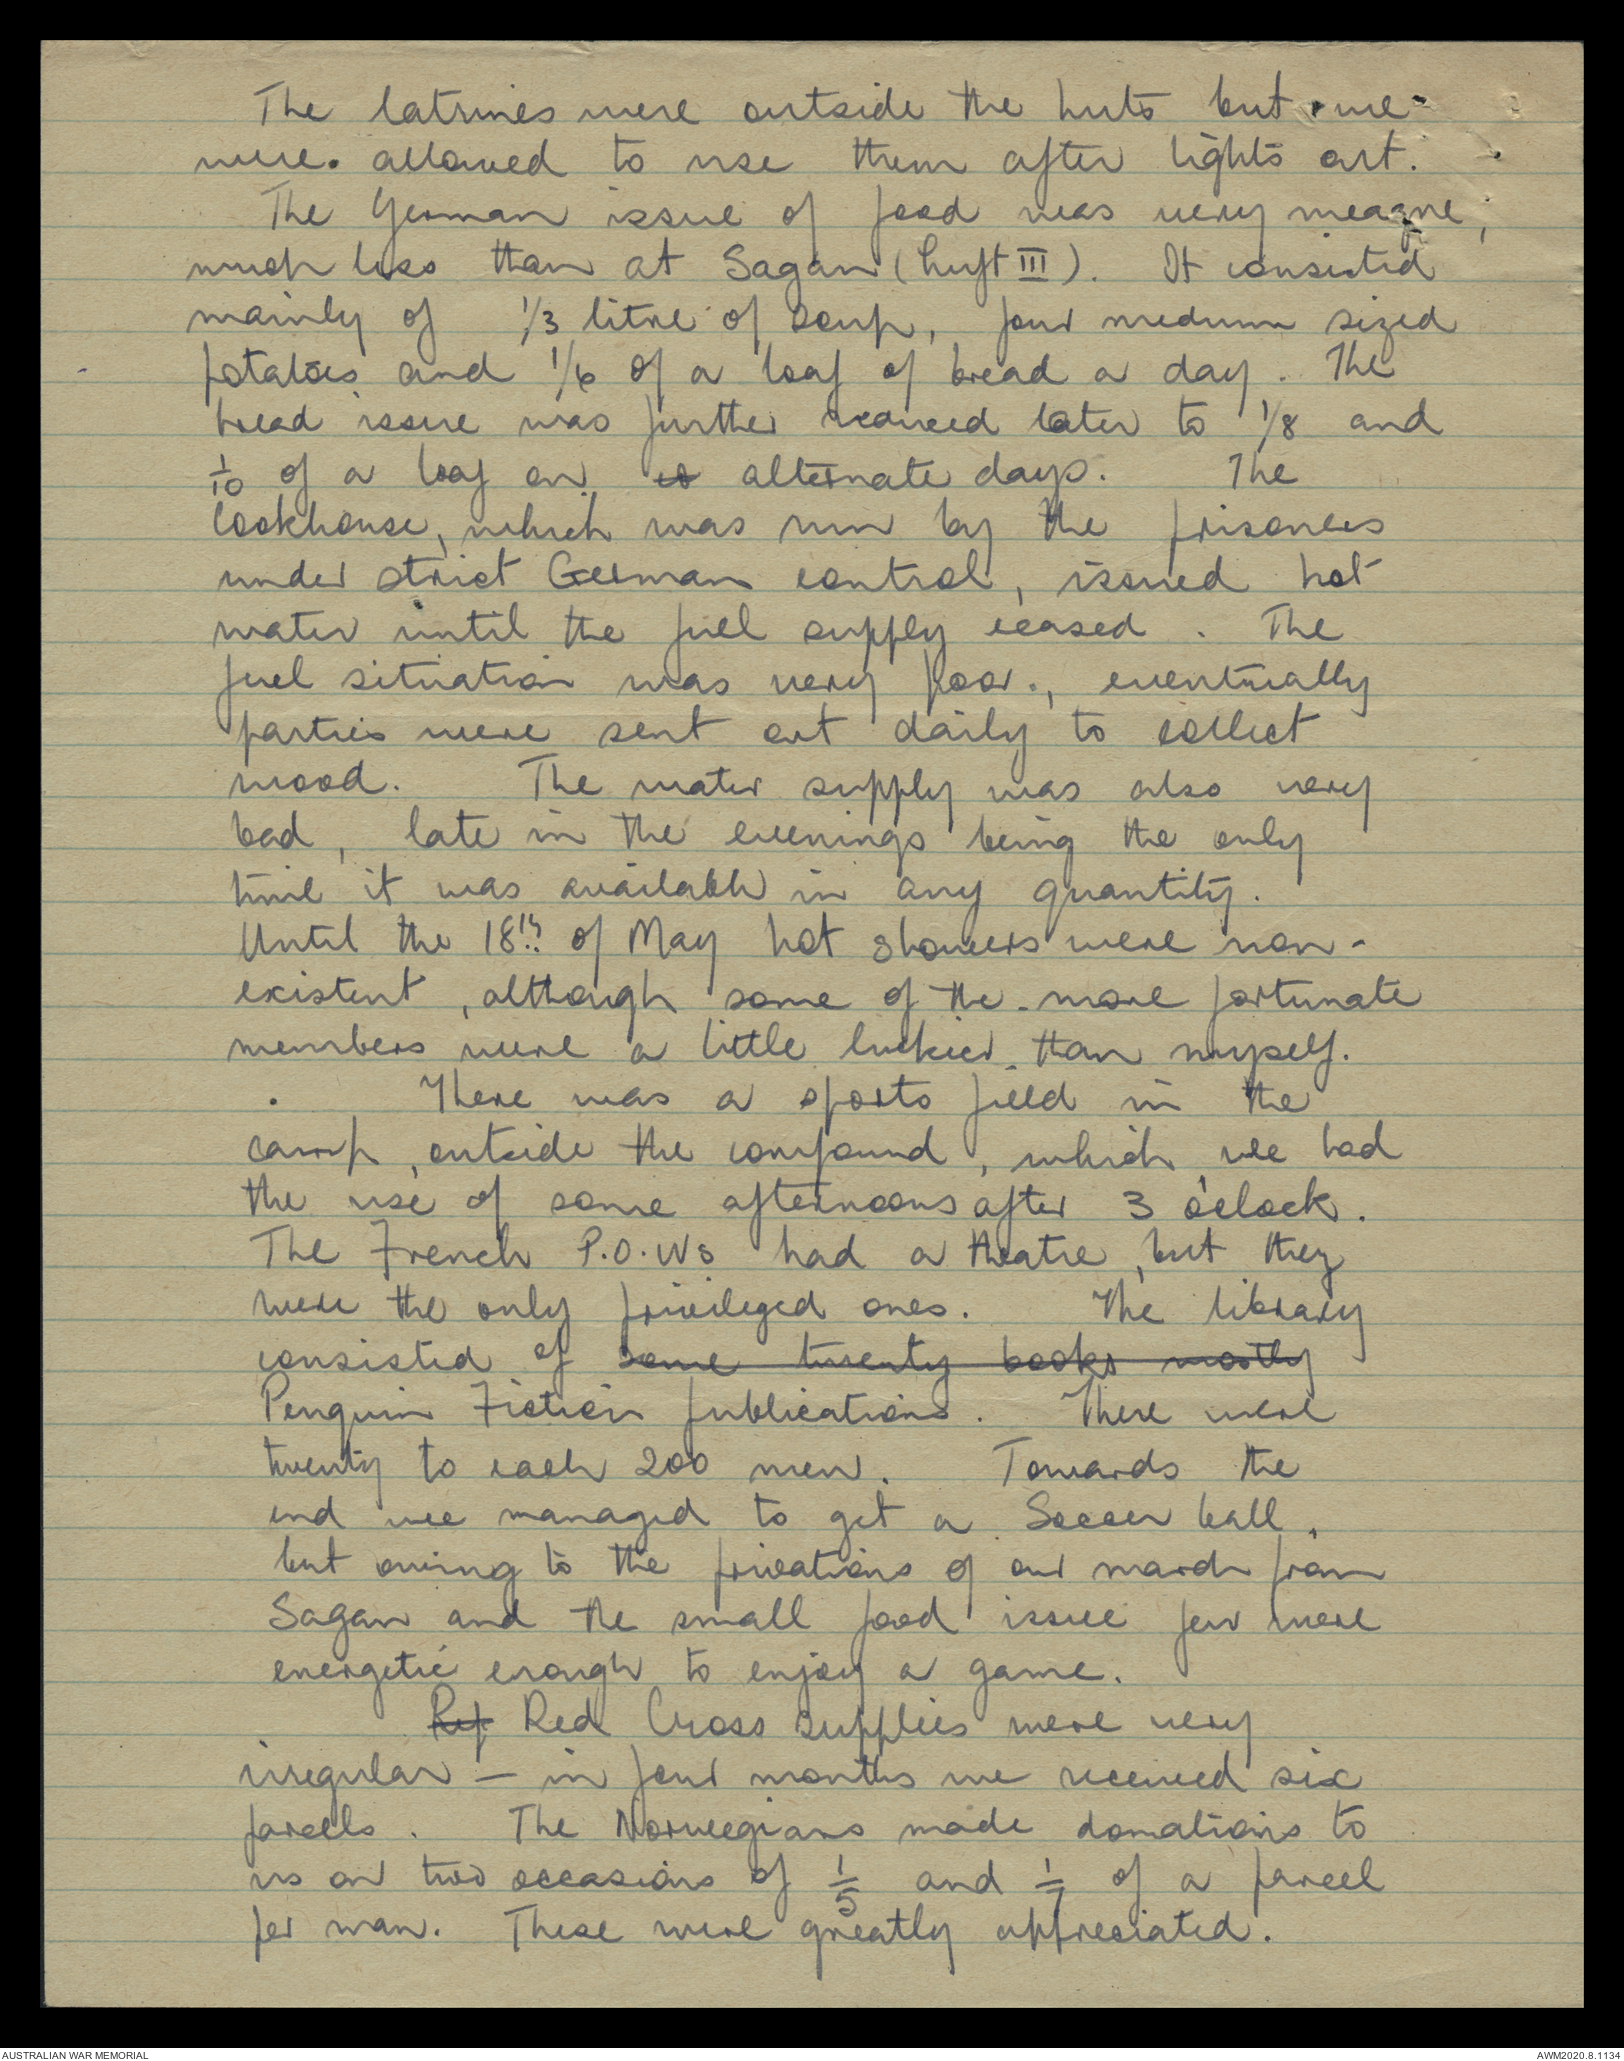 The latrines were outside the huts but we
were allowed to use them after lights out.
The German issue of food was very meagre,
much less than at Sagan (Luft III). It consisted
mainly of 1/3 litre of soup, four medium sized
potatoes and 1/6 of a loaf of bread a day. The
bread issue was further reduced later to 1/8 and
1/10 of a loaf on alternate days. The
cookhouse, which was run by the prisoners
under strict German control, issued hot
water until the fuel supply ceased. The
fuel situation was very poor., eventually
parties were sent out daily to collect
wood. The water supply was also very
bad, late in the evenings being the only
time it was available in any quantity.
Until the 18th of May hot showers were non-
existent, although some of the more fortunate
members were a little luckier than myself.
There was a sports field in the
camp, outside the compound, which we had
the use of some afternoons after 3 o'clock.
The French P.O.Ws had a theatre, but they
were the only privileged ones. The library
consisted of some twenty books mostly
Penguin Fiction publications. There were
twenty to each 200 men. Towards the
end we managed to get a Soccer ball,
but owing to the privations of our march from
Sagan and the small food issue few were
energetic enough to enjoy a game.
Ref Red Cross supplies were very
irregular — in four months we received six
parcels. The Norwegians made donations to
us on two occasions of 1/5 and 1/7 of a parcel
per man. These were greatly appresiated.
AUSTRALIAN WAR MEMORIAL
AWM2020.8.1134